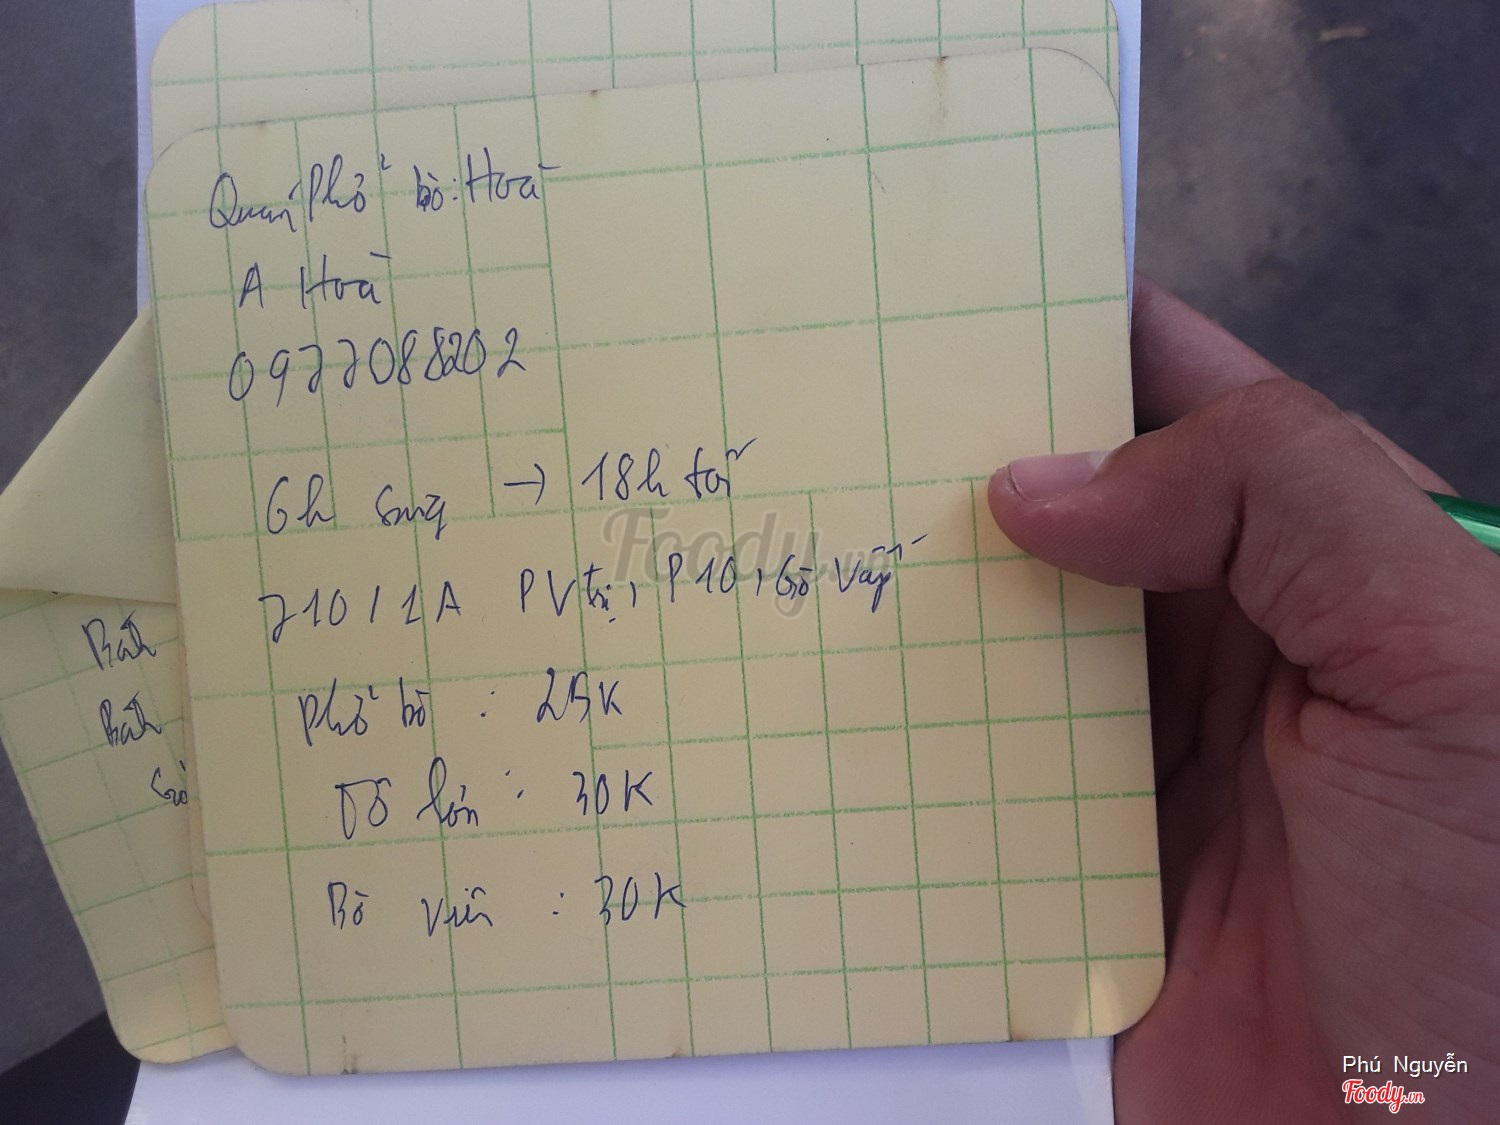 Quán Phở bò: Hoà
A Hoà
0977088202
6h sáng → 18h tối
710/1A PV trị, P10, Gò Vấp
Phở bò : 25K
Tô lớn : 30K
Bò viên : 30K
Foody.vn
Phú Nguyễn
Foody.vn